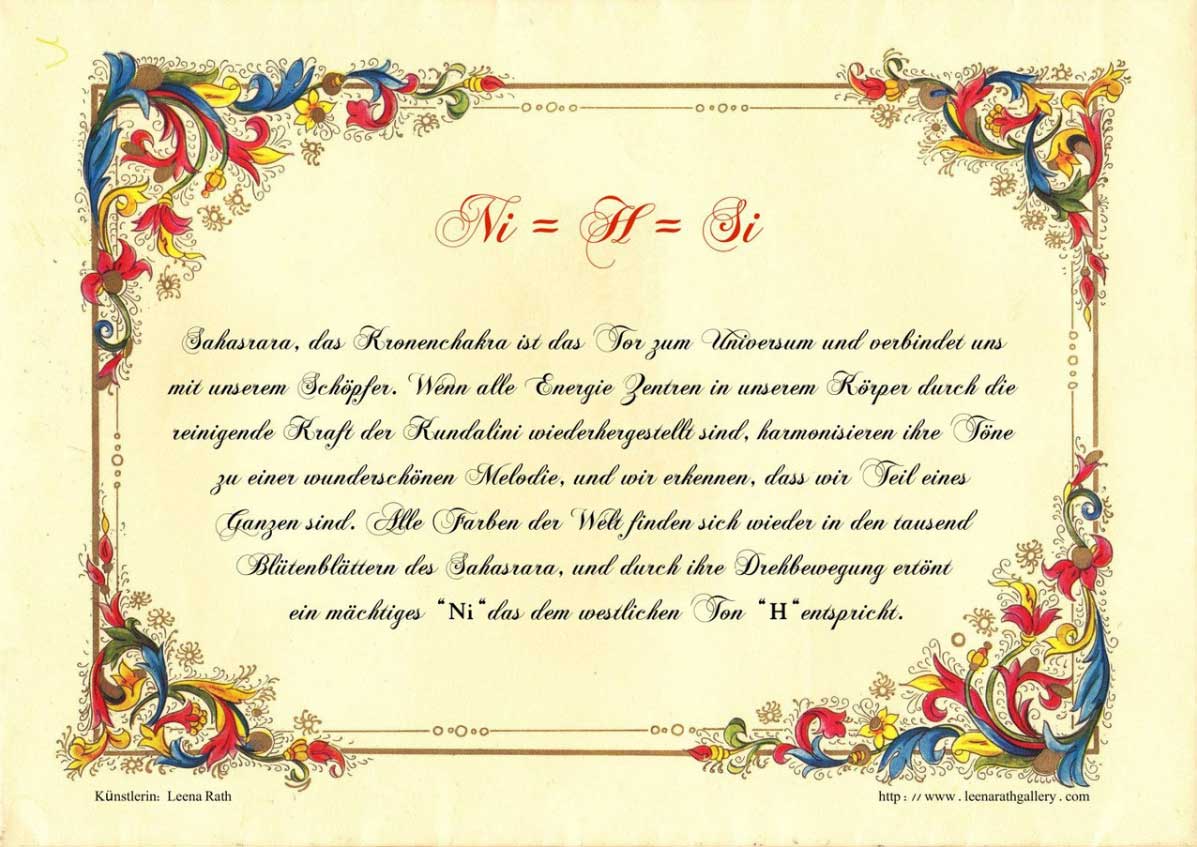 Ni = H = Si
Sahasrara, das Kronenchakra ist das Tor zum Universum und verbindet uns
mit unserem Schöpfer. Wenn alle Energie Zentren in unserem Körper durch die
reinigende Kraft der Kundalini wiederhergestellt sind, harmonisieren ihre Töne
zu einer wunderschönen Melodie, und wir erkennen, dass wir Teil eines
Ganzen sind. Alle Farben der Welt finden sich wieder in den tausend
Blütenblättern des Sahasrara, und durch ihre Drehbewegung ertönt
ein mächtiges “Ni“das dem westlichen Ton “H“entspricht.
Künstlerin: Leena Rath
http : // www . leenarathgallery . com